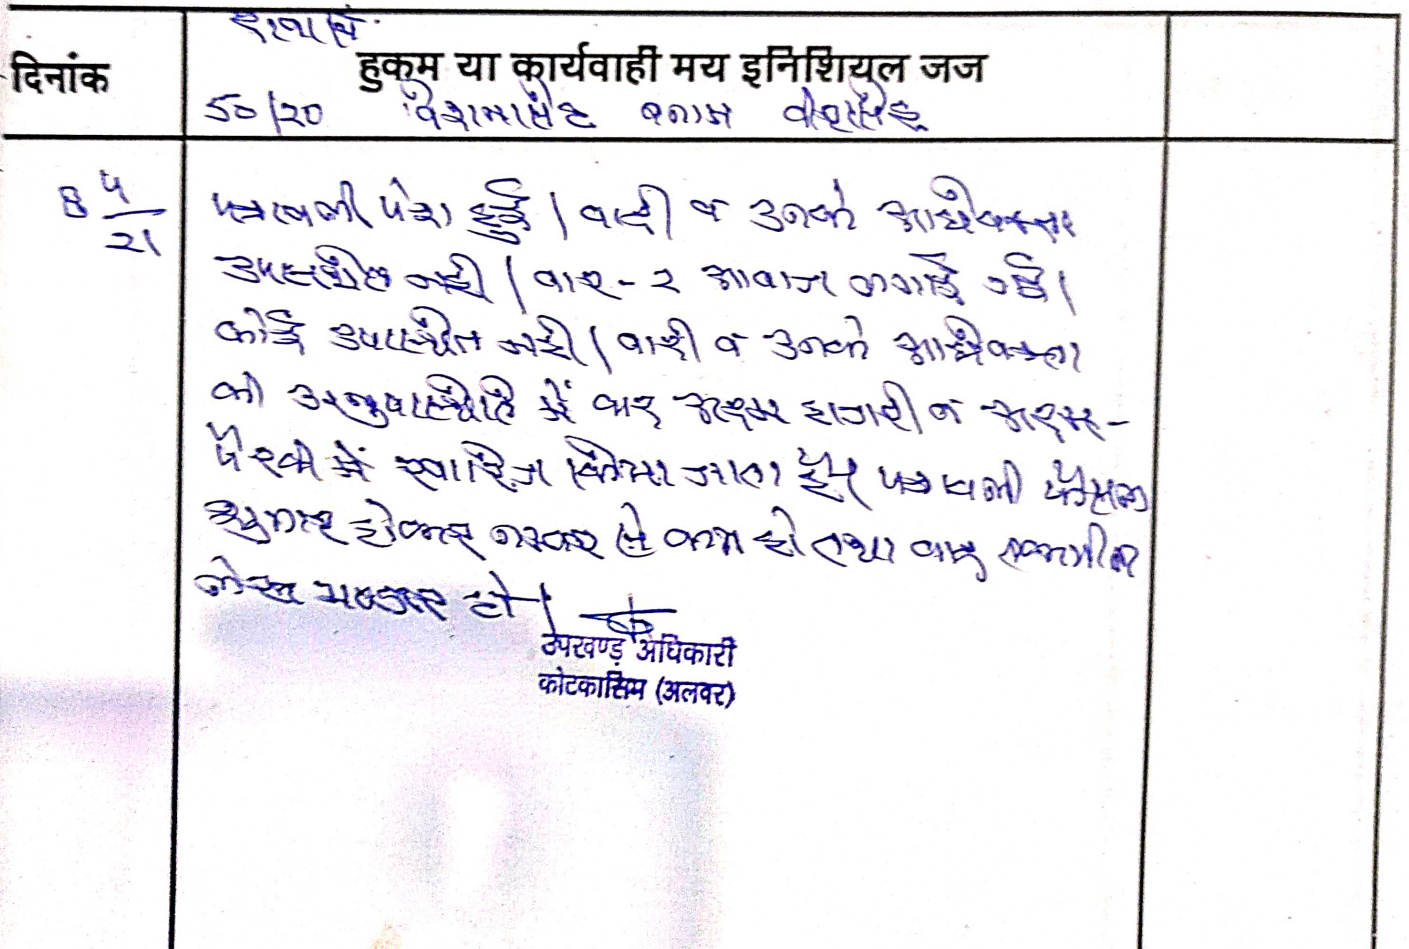 दिनांक
हुकम या कार्यवाही मय इनिशियल जज
50/20 बनाम
8 4/21
पत्रावली पेश हुई । वादी व उनके अधिवक्ता
उपस्थित नहीं । बार-2 आवाज लगाई गई ।
कोई उपस्थित नहीं । वादी व उनके अधिवक्ता
की अनुपस्थिति में वाद अदम हाजरी व अदम-
पैरवी में खारिज किया जाता है। पत्रावली फैसल
शुमार होकर नम्बर से कम हो तथा बाद तकमील
लेख भण्डार हो ।
उपखण्ड अधिकारी
कोटकासिम (अलवर)